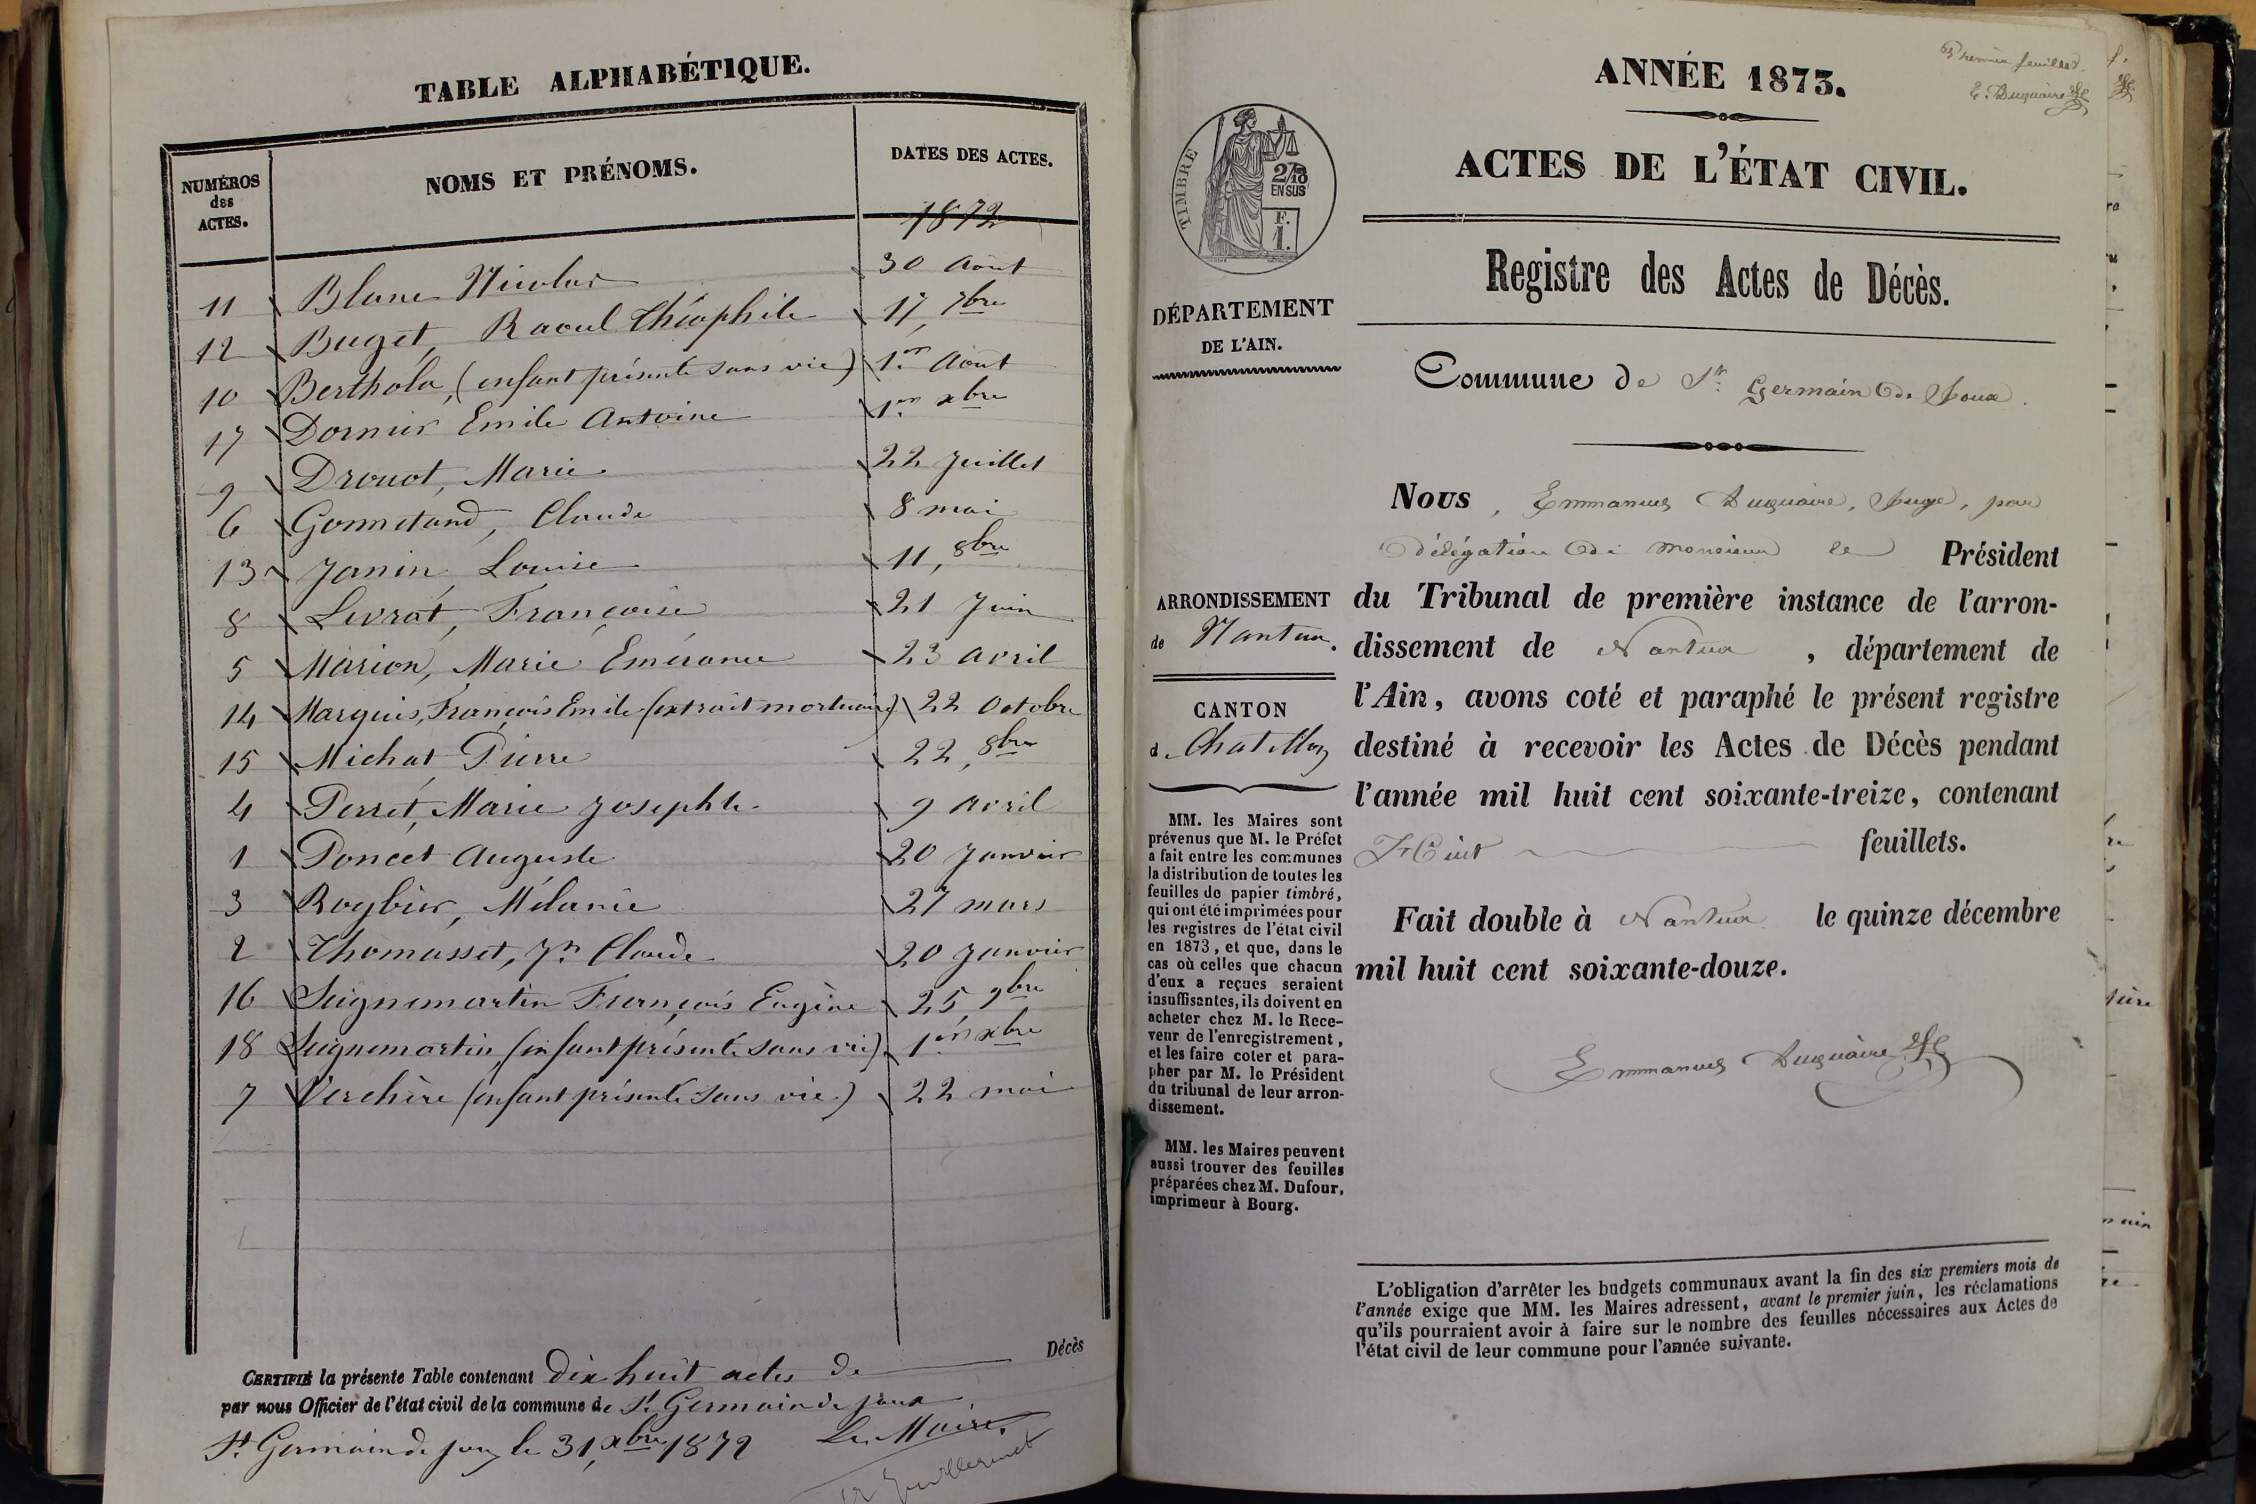 TABLE ALPHABÉTIQUE.
NUMÉROS des ACTES. NOMS ET PRÉNOMS. DATES DES ACTES.
1872
11 Blanc Nicolas 30 Août
12 Buget, Raoul Théophile 17, 7bre
10 Berthola, (enfant présenté sans vie) 1er Août
17 Dornier Emile Antoine 1er xbre
9 Drouot, Marie 22 Juillet
6 Gonnetand, Claude 8 mai
13 Janin, Louise 11, 8bre
8 Levrat, Françoise 21 Juin
5 Marion, Marie Emérance 23 avril
14 Marquis, François Emile (extrait mortuaire) 22 Octobre
15 Michat Pierre 22, 8bre
4 Perret, Marie Josephte 9 Avril
1 Poncet Auguste 20 Janvier
3 Roybier, Mélanie 27 mars
2 Thomasset, Jn Claude 20 Janvier
16 Seignemartin François Eugène 25, 9bre
18 Seignemartin (enfant présenté sans vie) 1er xbre
7 Verchère (enfant présenté sans vie) 22 mai
Décès
CERTIFIÉ la présente Table contenant Dix huit actes de
par nous Officier de l'état civil de la commune de St Germain de Joux
St Germain de Joux le 31, xbre 1872 Le Maire.
Premier feuillet.
E. Duquaire
ANNÉE 1873.
ACTES DE L'ÉTAT CIVIL.
TIMBRE
2/10
EN SUS
F.
1.
DÉPARTEMENT
DE L'AIN.
Registre des Actes de Décès.
Commune de St Germain de Joux.
ARRONDISSEMENT
de Nantua.
CANTON
d Chatillon
MM. les Maires sont
prévenus que M. le Préfet
a fait entre les communes
la distribution de toutes les
feuilles de papier timbré,
qui ont été imprimées pour
les registres de l'état civil
en 1873, et que, dans le
cas où celles que chacun
d'eux a reçues seraient
insuffisantes, ils doivent en
acheter chez M. le Rece-
veur de l'enregistrement,
et les faire coter et para-
pher par M. le Président
du tribunal de leur arron-
dissement.
MM. les Maires peuvent
aussi trouver des feuilles
préparées chez M. Dufour,
imprimeur à Bourg.
Nous, Emmanuel Duquaire, Juge, par
délégation de monsieur le Président
du Tribunal de première instance de l'arron-
dissement de Nantua, département de
l'Ain, avons coté et paraphé le présent registre
destiné à recevoir les Actes de Décès pendant
l'année mil huit cent soixante-treize, contenant
Huit feuillets.
Fait double à Nantua le quinze décembre
mil huit cent soixante-douze.
Emmanuel Duquaire
L'obligation d'arrêter les budgets communaux avant la fin des six premiers mois de
l'année exige que MM. les Maires adressent, avant le premier juin, les réclamations
qu'ils pourraient avoir à faire sur le nombre des feuilles nécessaires aux Actes de
l'état civil de leur commune pour l'année suivante.